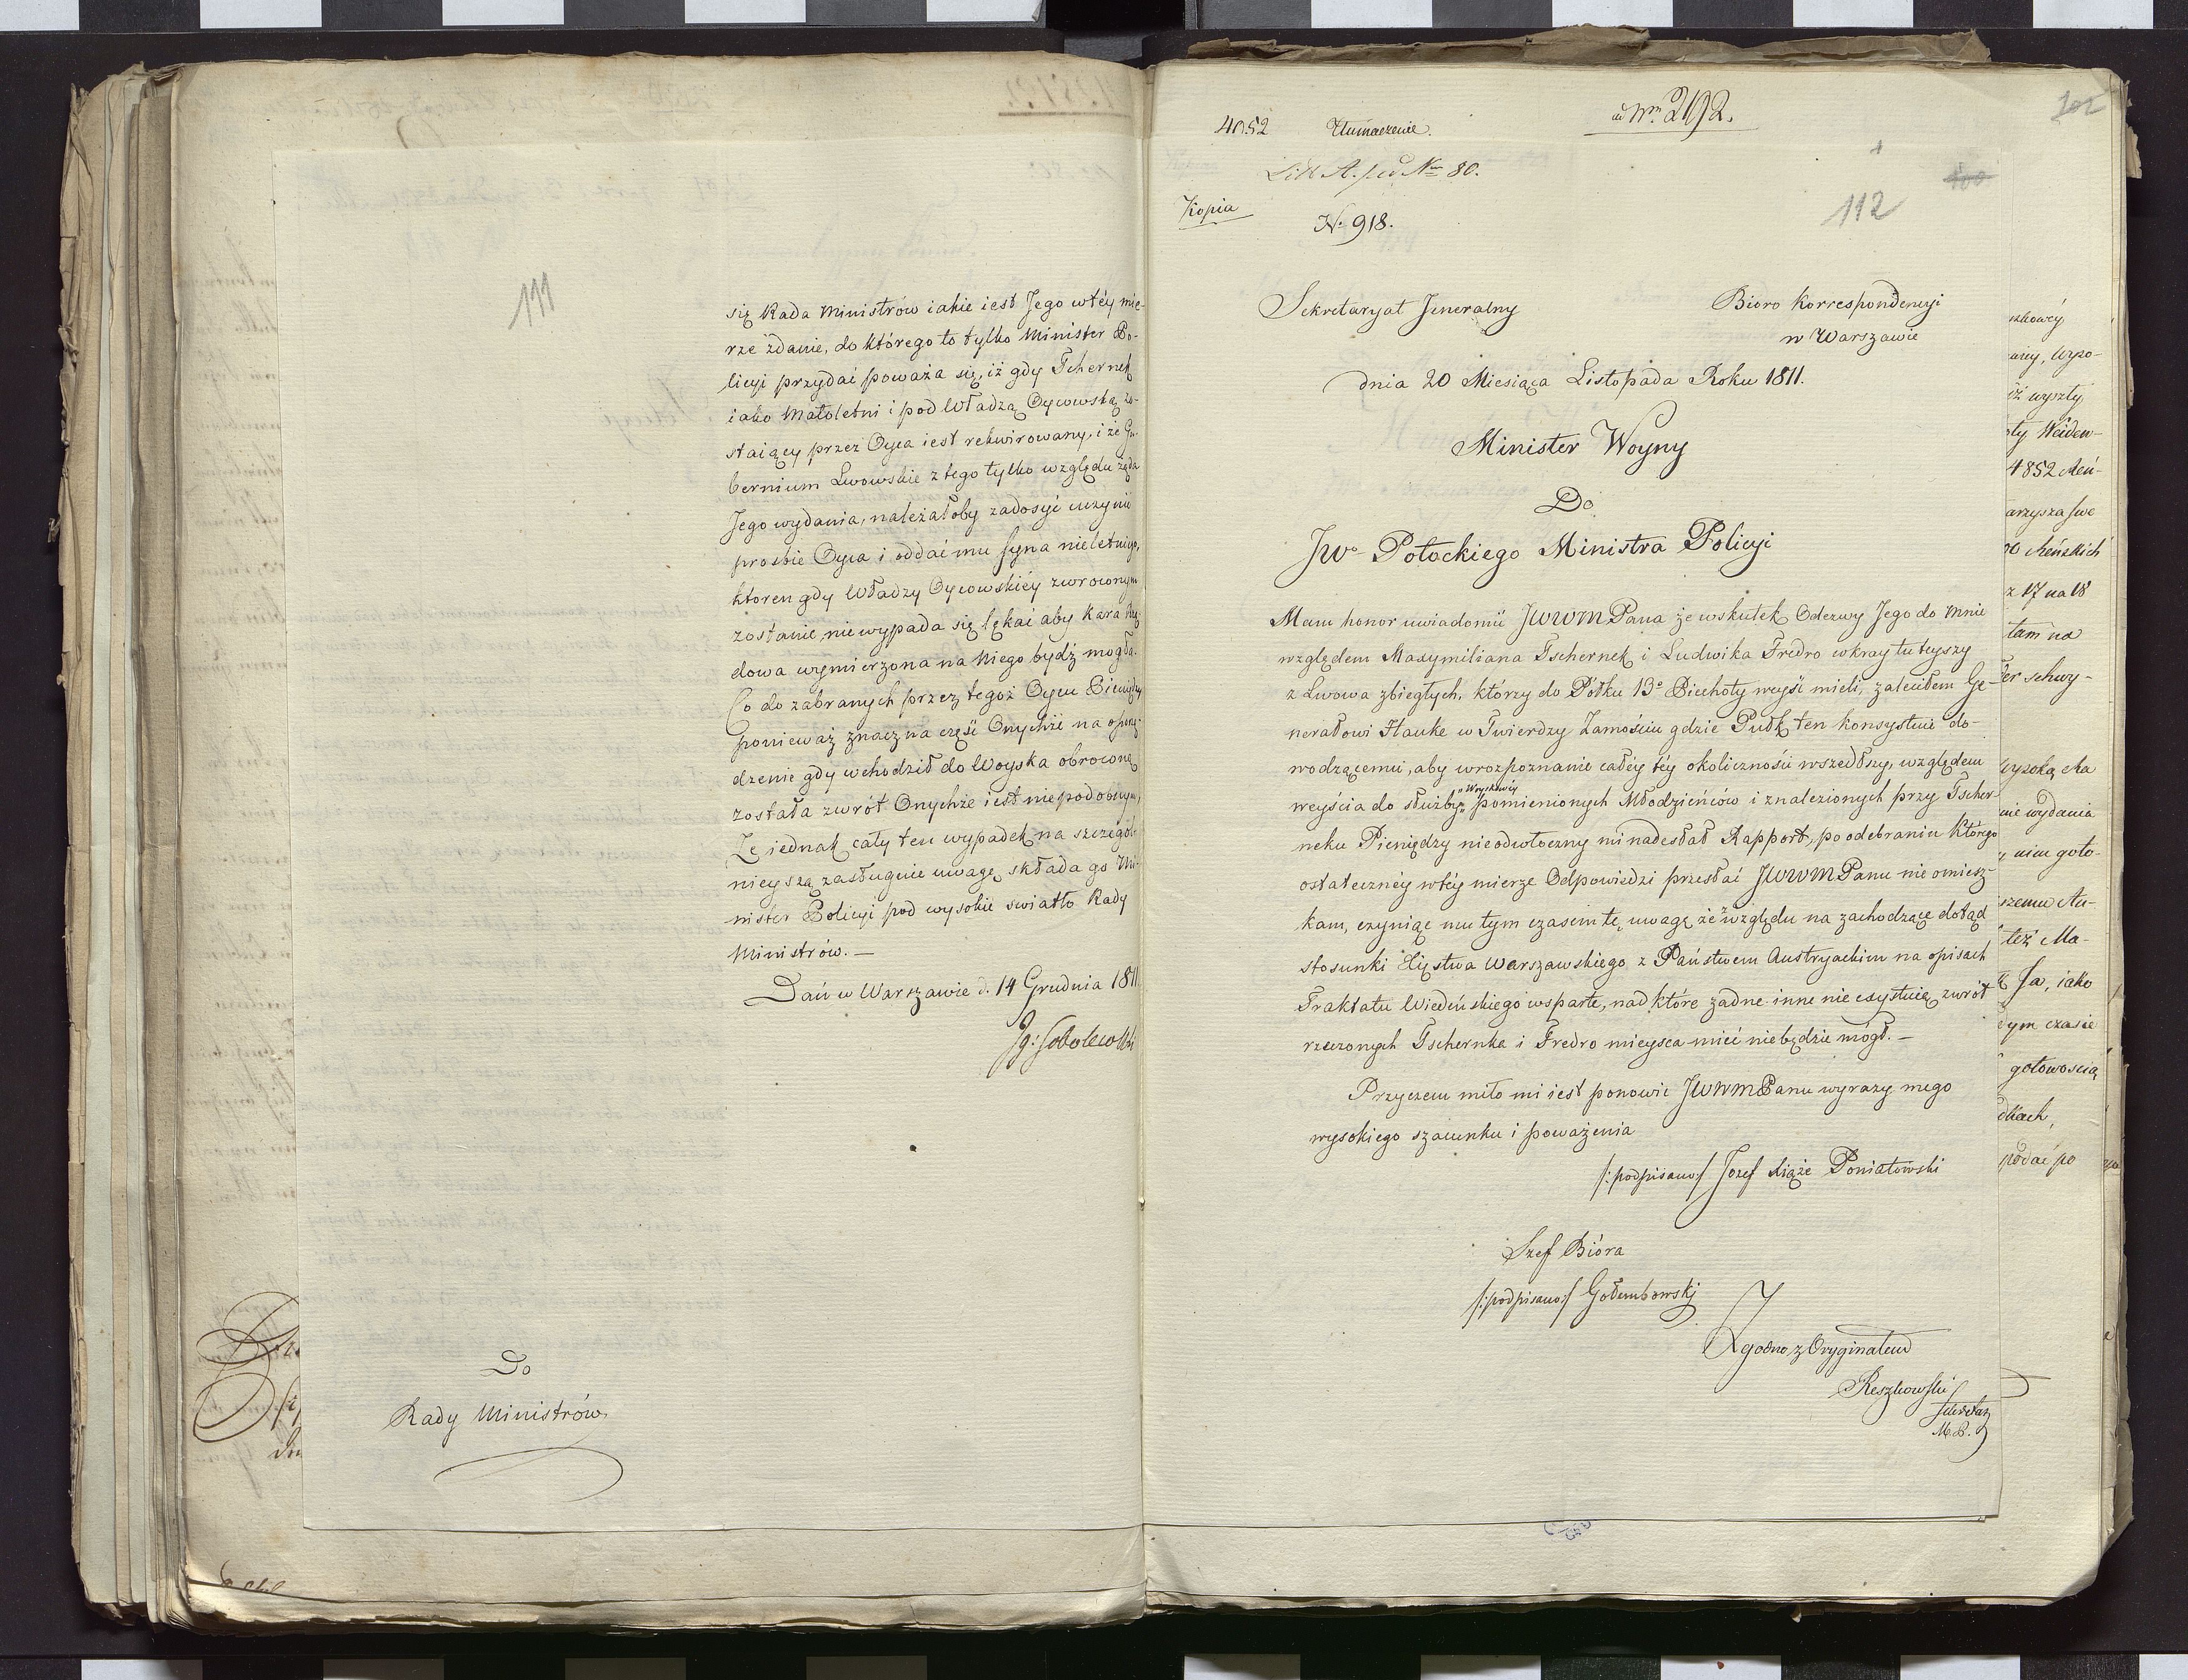 111
się Rada Ministrów iakie iest Jego wtéy mie-
rze zdanie, do którego to tylko Minister Po-
licyi przydać poważa się, iż gdy Tschernek
iako Małoletni i pod Władzą Oycowską zo-
staiący przez Oyca iest rekwirowany, i że Gu-
bernium Lwowskie z tego tylko względu żąda
Jego wydania, należałoby zadosyć uczynić
prośbie Oyca i oddać mu syna nieletniego,
ktoren gdy Władzy Oycowskiéy zwroconym
zostanie, nie wypada się lękać aby Kara Rzą-
dowa wymierzona na Niego bydź mogła.
Co do zabranych przez tegoż Oycu Pieniędzy
ponieważ znaczna część Onychże na oporzą-
dzenie gdy wchodził do Woyska obrocona
została zwrót Onychże iest niepodobnym,
Że iednak cały ten wypadek na szczegól-
nieyszą zasługuie uwagę, składa go Mi-
nister Policyi pod wysokie swiatło Rady
Ministrów. —
Dań w Warszawie d. 14 Grudnia 1811
Ig: Sobolewski
Do
Rady Ministrów
4052 Tłumaczenie. ad Nrm 2192.
Litt A. ad Nro 80.
Kopia
112
N. 918.
Sekretaryat Jeneralny
Bióro Korrespondencyi
w Warszawie
dnia 20 Miesiąca Listopada Roku 1811.
Minister Woyny
Do
JWo Potockiego Ministra Policyi
Mam honor uwiadomić JWWMPana że wskutek Odezwy Jego do Mnie
względem Maxymiliana Tschernek i Ludwika Fredro wkray tuteyszy
z Lwowa zbiegłych, którzy do Półku 13o Piechoty weyść mieli, zaleciłem Ge-
nerałowi Hauke w Twierdzy Zamościu gdzie Pułk ten konsystuie do-
wodzącemu, aby wrozpoznanie całéy téy okoliczności wszedłszy, względem
weyścia do służby Woyskowéy pomienionych Młodzieńców i znalezionych przy Tscher-
neku Pieniędzy nieodwłoczny mi nadesłał Rapport, po odebraniu którego
ostatecznéy wtéy mierze Odpowiedzi przesłać JWWMPanu nie omiesz-
kam, czyniąc mu tym czasem tę uwagę, że względu na zachodzące dotąd
stosunki Xięstwa Warszawskiego z Państwem Austryackim na opisach
Traktatu Wiedeńskiego wsparte, nad które żadne inne nie exystuią, zwrót
rzeczonych Tschernka i Fredro mieysca mieć niebędzie mógł. —
Przyczem miło mi iest ponowić JWWMPanu wyrazy mego
wysokiego szacunku i poważenia
/:podpisano:/ Jozef Xiąże Poniatowski
Szef Bióra
/:podpisano:/ Gołembowskj
Zgodno z Oryginałem
Reszkowski
Sekretarz
M.P.
szkowéy
iż wyszły
4852 Reń-
arzysza swe
Reńskich
z 17 na 18
tam na
er schwy-
wysoką Ma
nie wydania
nim goto-
szemu Au-
też Ma-
Ja, iako
czasie
gotowością
podać po